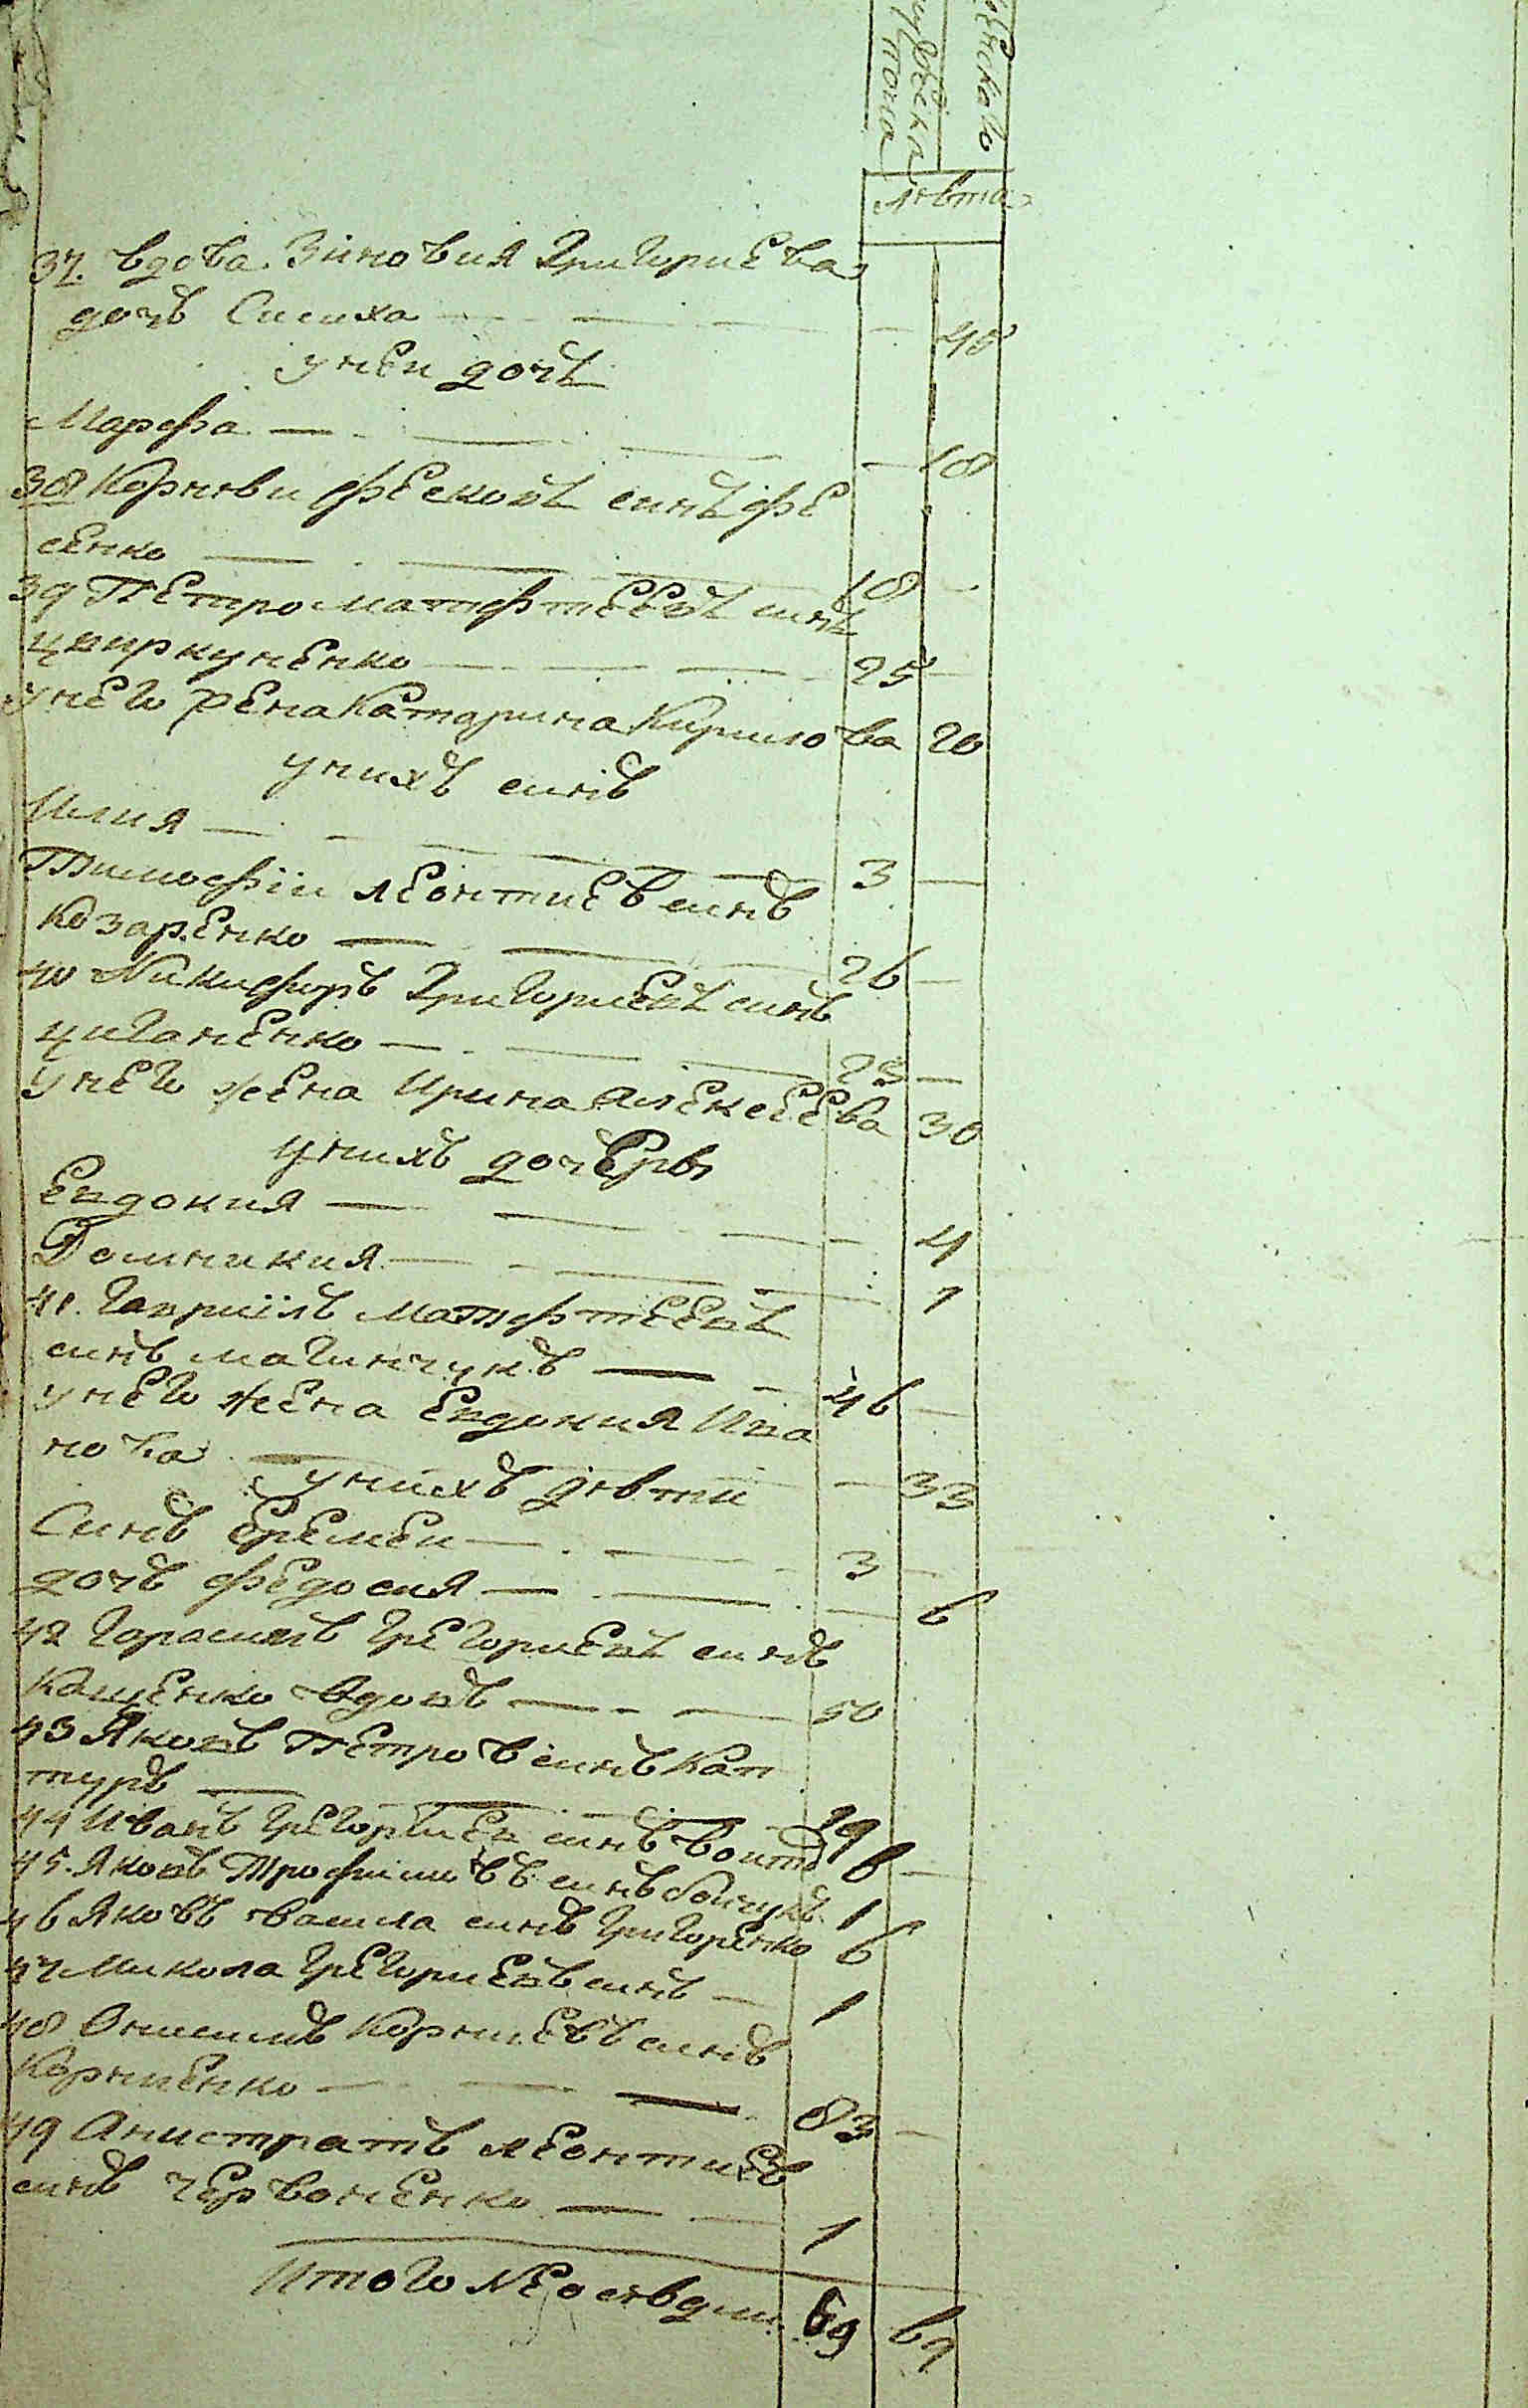 женскаго
мужеска
пола
лѣта
37. вдова Зиновия Григориева
дочъ Сисиха — — — — 45
у неи дочъ
Марфа — — — — 18
38 Корнѣи Фесковъ синъ Фе
сенко — — — 18 —
39 Петро Матфтеевъ синъ
цвиркуненко — — — 25 —
у него жена Катарина Кирилова 20
у нихъ синъ
Илия — — — — 3 —
Тимофіи Леонтиев синъ
Козаренко — — — 26 —
40 Никифоръ Григориевъ синъ
циганенко — — — 23 —
у него жена Ирина Алексеева 30
у нихъ дочеры
Евдокия — — — — 4
Домникия — — — — 1
41. Гавриїлъ Матфтеевъ
синъ магинчукъ — — 46 —
у него жена Евдокия Ива
нова — — 33
у нихъ дѣти
Синъ Еремеи — — — 3 —
дочъ Федосия — — — 6
42 Гарасимъ Грегориевъ синъ
Кащенко вдовъ — — — 50
43 Яковъ Петров синъ Кап
туръ — — — — 19
44 Иванъ Грегориев синъ воито 6 —
45. Яковъ Трофимовъ синъ боичукъ 1
46 Яковъ васила синъ Григоренко 6
47 Микола Грегориевъ синъ — 1
48 Онисимъ Корниевъ синъ
Корниенко — — — 83 —
49 Анистратъ Леонтиев
синъ червоненко — — 1
Итого 69 69